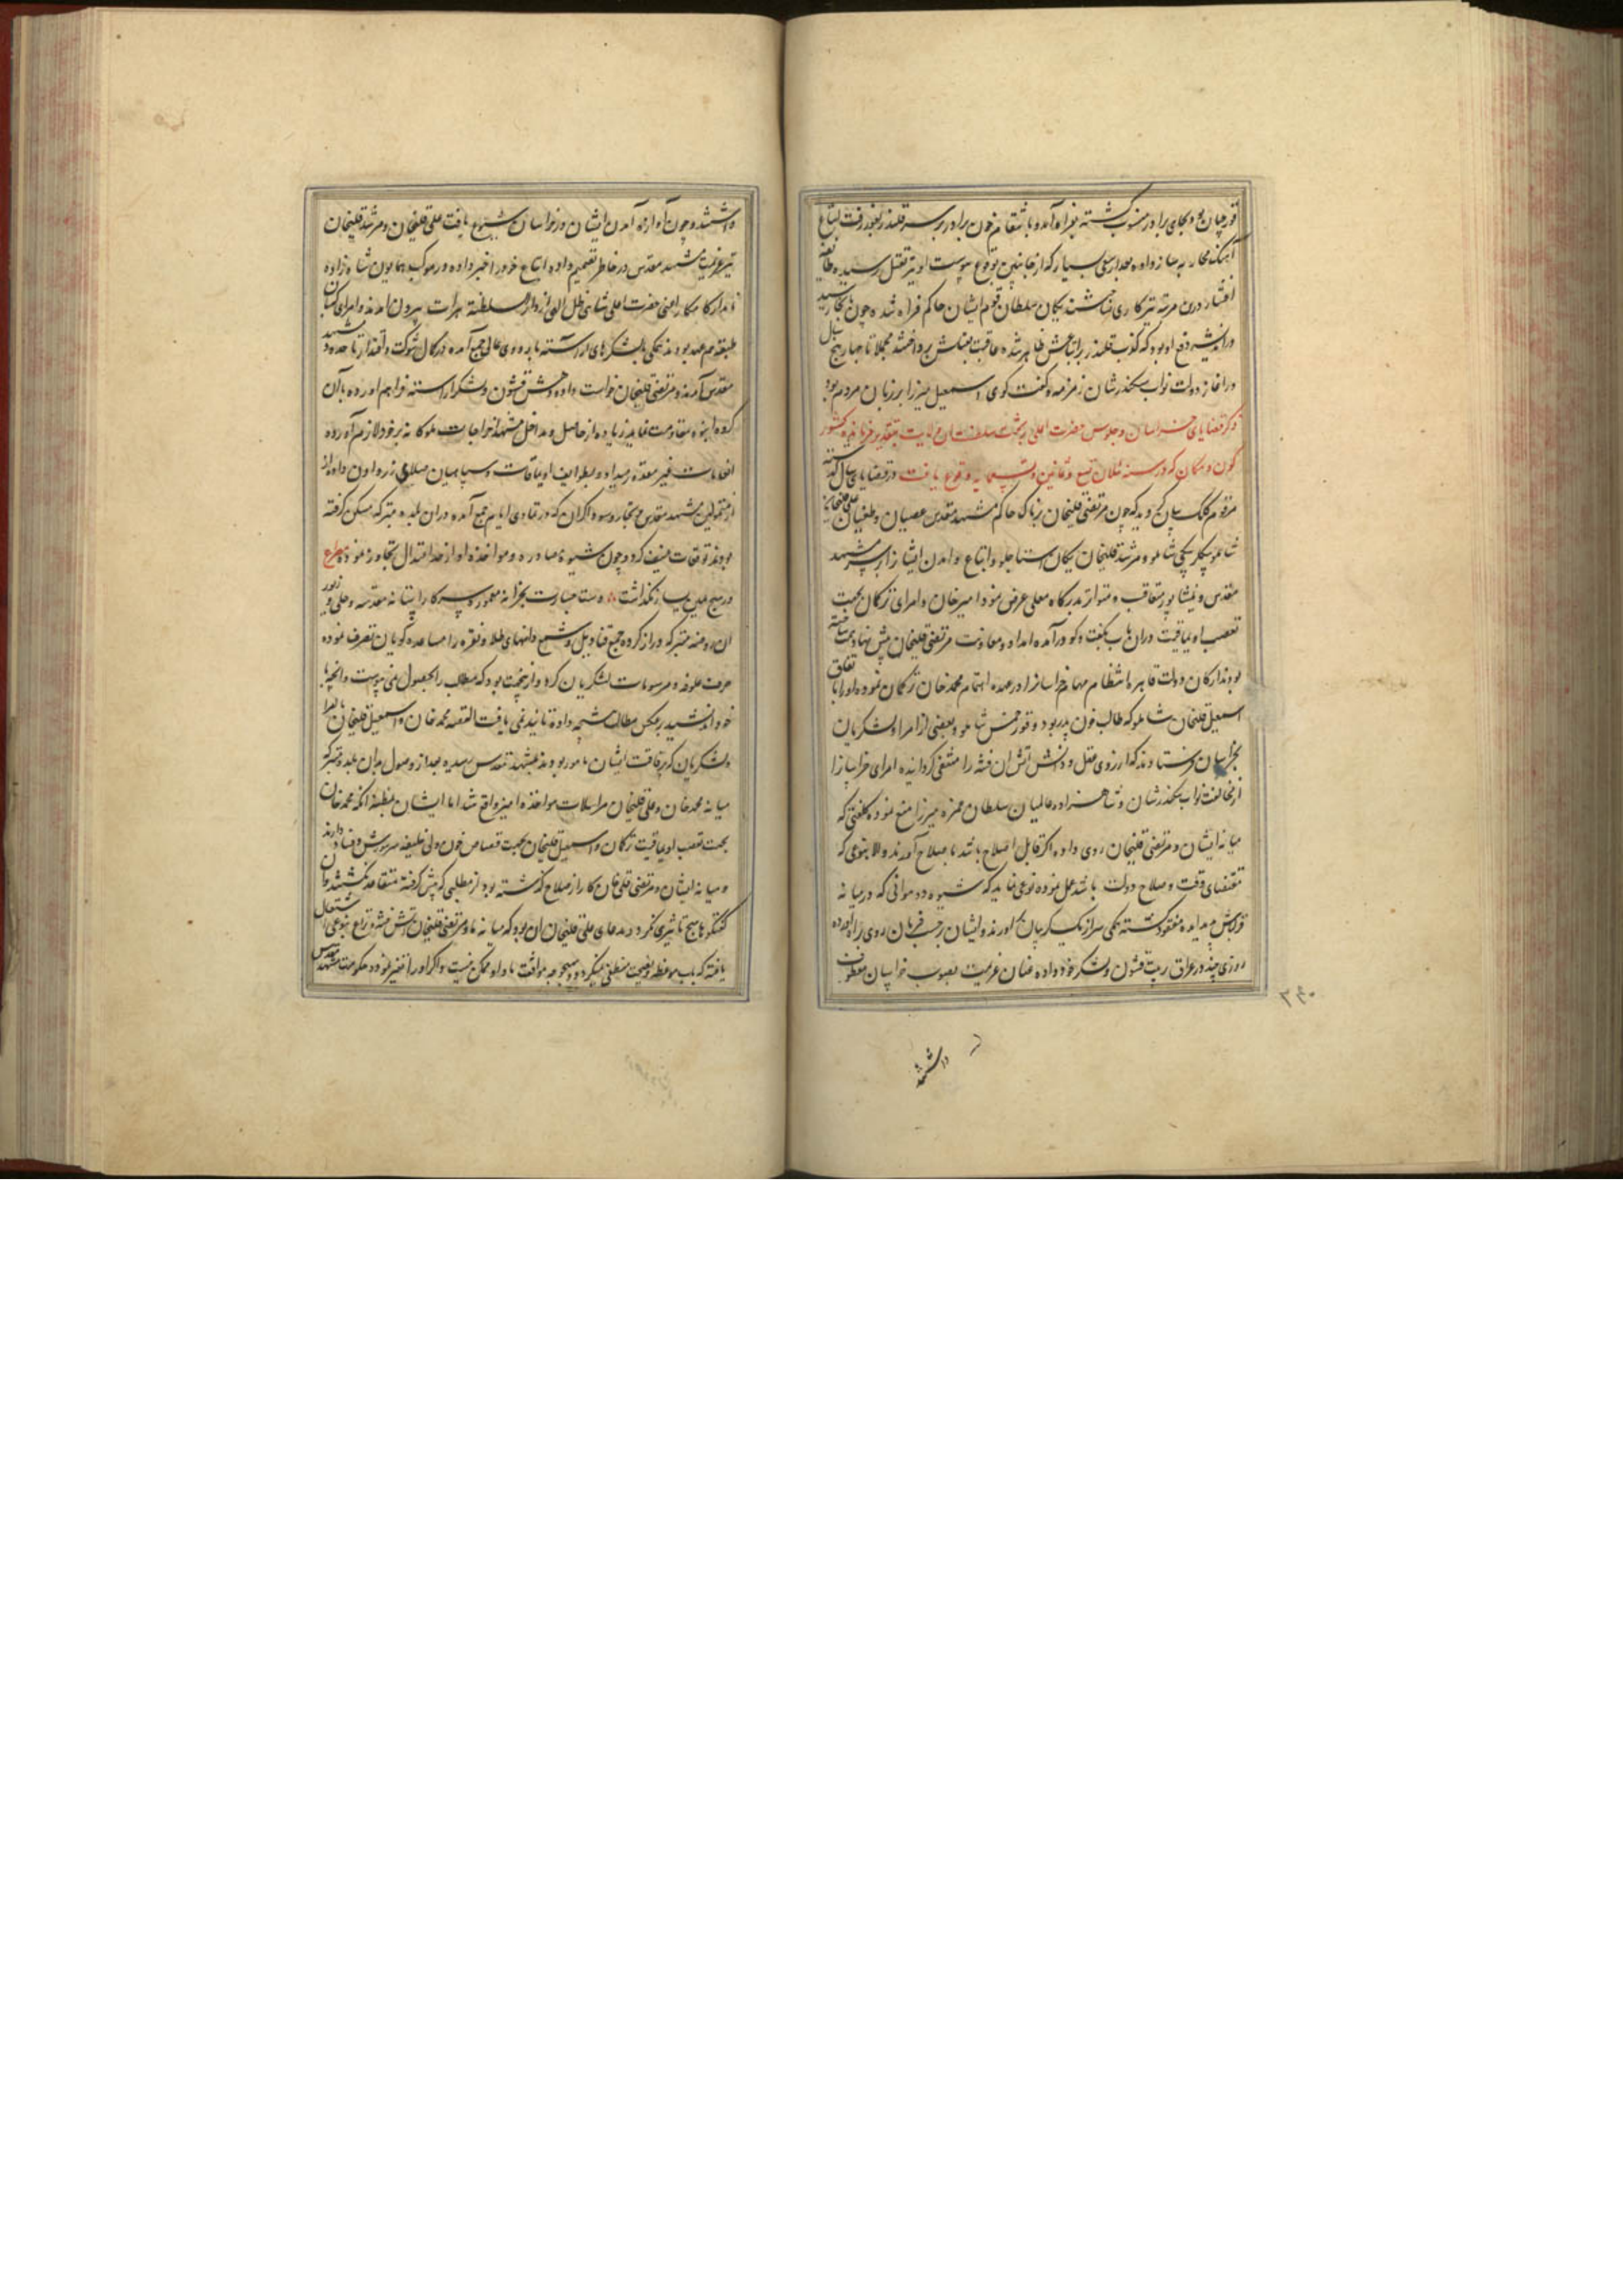 قورچیان بود بجای برادر منسوب گشته بفراه آمده بانتقام خون برادر بر سر قلندر بغبدرفت اتباع
آهنگ محاربه ساز داده بعد از سعی بسیار که از جانبین بوقوع پیوست او نیز بقتل رسیده طایفه
افشار درین مرتبه ترکاری نساختند یکان سلطان قوم ایشان حاکم فراه شده چون بکار رسید
در اندیشه دفع او بود که کذب قلندر بر اتباعش ظاهر شده عاقبت بقتلش پرداختند مجملا تا چهار پنج سال
در آغاز دولت نواب سکندرشان زمزمه و گفت گوی اسمعیل میرزا بر زبان مردم بود
ذکر قضایای خراسان و جلوس حضرت اعلی بر تخت سلطنت آن ولایت بتقدیر فرمانفرمای کشور
کون و مکان که در سنه ثلاث تسع و ثمانین و تسعمایه وقوع یافت در قضایای سال گذشته
مرقوم کلک بیان گردید که چون مرتضی قلیخان پرناک حاکم مشهد مقدس عصیان و طغیان علی قلیخان
شاملو بیگلربیگی شاملو و مرشد قلیخان یکان استاجلو و اتباع و آمدن ایشان را بر سر مشهد
مقدس و نیشابور متعاقب و متواتر بدرگاه معلی عرض نمود امیرخان و امرای ترکمان بجهت
تعصب اویماقیت در آن باب بگفت و گو درآمده امداد و معاونت مرتضی قلیخان پیش نهاد همت ساخته
بودند ارکان دولت قاهره انتظام مهام خراسان را در عهده اهتمام محمدخان ترکمان نموده او را باتفاق
اسمعیل قلیخان شاملو که طالب خون پدر بود و قورخمس شاملو و بعضی از امرا و لشکریان
بخراسان فرستادند که از روی عقل و دانش آتش آن فتنه را منطفی گردانیده امرای خراسان را
از مخالفت نواب سکندرشان و شاهزاده عالمیان سلطان حمزه میرزا منع نموده کلفتی که
میانه ایشان و مرتضی قلیخان روی داده اگر قابل اصلاح باشد باصلاح آورند و الا بنوعی که
مقتضای وقت و صلاح دولت باشد عمل نموده نوعی نمایند که شیوه دو هوائی که در میانه
قزلباش پدید آمده مفقود گشته همگی سر از یک گریبان برآورند و ایشان بر حسب فرمان روی براه آورده
روزی چند در عراق ترتیب قشون و لشکر خود داده عنان عزیمت بصوب خراسان معطوف
داشتند
۳۴۰
داشتند و چون آوازه آمدن ایشان در خراسان شیوع یافت علی قلیخان و مرشد قلیخان
نیز عزیمت مشهد مقدس در خاطر تصمیم داده اتباع خود را خبر داده در موکب همایون شاهزاده
نامدار کامکار اعنی حضرت اعلی شاهی ظل اللهی از دار السلطنه هرات بیرون آمدند و امرای کبار آن
طبقه هم عهد بودند همگی با لشکرهای آراسته باردوی عالی جمع آمده در کمال شوکت و اقتدار تا حدود مشهد
مقدس آمدند و مرتضی قلیخان خواست داده شش قشون و لشکر آراسته فراهم آورده با آن
گروه انبوه مقاومت نماید زیاده از حاصل و مداخل مشهد اخراجات ملوکانه بر خود لازم آورده
انعامات غیر معتده میداد و بطوایف اویماقات و سپاهیان مبلغی زر و اون داده از
از متمولین مشهد مقدس و تجار و سوداگران که در تمادی ایام جمع آمده در آن بلده متبرکه مسکن گرفته
بودند توقعات عنیف کرد و چون شیوه مصادره و مواخذه او از حد اعتدال تجاوز نموده مصراع
در هیچ طریق بسیار نگذاشت دست جسارت بخزانه معموره سرکار آستانه مقدسه و حلی و زیور
آن روضه متبرکه دراز کرده جمیع قنادیل و شمعدانهای طلا و نقره را مساعده گویان تصرف نموده
صرف علوفه و مرسومات لشکریان کرد و از بخت بود که مطالب را بحصول نمی پیوست و آنچه با
خود اندیشید بر عکس مطالب نتیجه داده تائید نمی یافت القصه محمدخان و اسمعیل قلیخان با امرا
و لشکریان که برفاقت ایشان مامور بودند بمشهد مقدس رسیده بعد از وصول بدان بلده متبرکه
میانه محمدخان و علی قلیخان مراسلات مواخذه آمیز واقع شد اما ایشان بمظنه آنکه محمدخان
بجهت تعصب اویماقیت ترکمان و اسمعیل قلیخان بجهت قصاص خون ولی خلیفه سر شورش و فساد دارند
و میانه ایشان و مرتضی قلی خان کار از صلاح گذشته بود از مطلبی که پیش گرفته متقاعد نگشتند و آن
گفتگوها هیچ تاثیری نکرد و مدعای علی قلیخان آن بود که میانه ما و مرتضی قلیخان آتش فتنه و نزاع بنوعی اشتعال
یافته که بآب موعظه و نصیحت منطفی نمیگردد و بهیچوجه موافقت ما و او ممکن نیست و اگر او را تغییر نموده حکومت مشهد مقدس